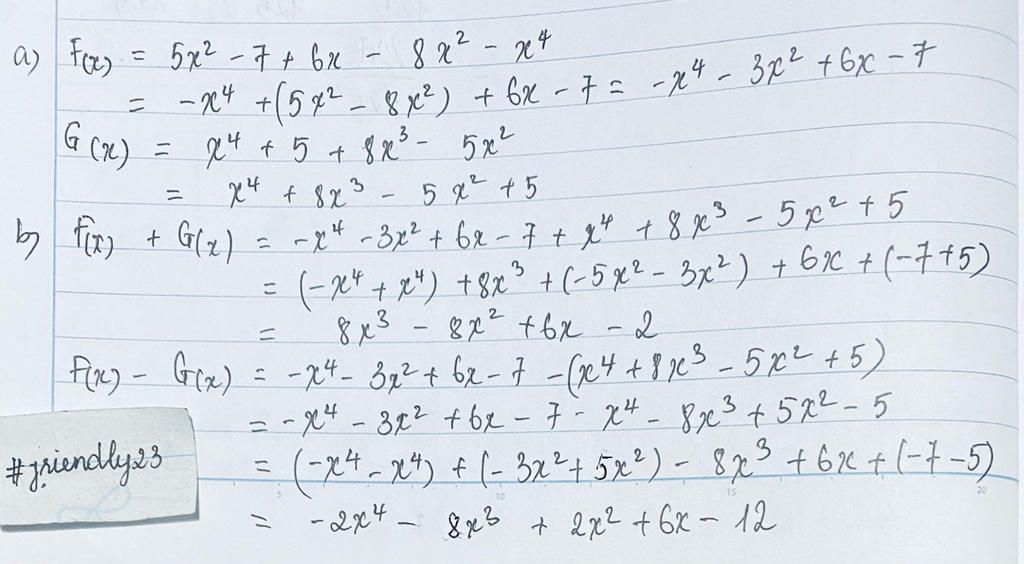 a) F(x) = 5x² - 7 + 6x - 8x² - x⁴
= -x⁴ + (5x² - 8x²) + 6x - 7 = -x⁴ - 3x² + 6x - 7
G(x) = x⁴ + 5 + 8x³ - 5x²
= x⁴ + 8x³ - 5x² + 5
b) F(x) + G(x) = -x⁴ - 3x² + 6x - 7 + x⁴ + 8x³ - 5x² + 5
= (-x⁴ + x⁴) + 8x³ + (-5x² - 3x²) + 6x + (-7 + 5)
= 8x³ - 8x² + 6x - 2
F(x) - G(x) = -x⁴ - 3x² + 6x - 7 - (x⁴ + 8x³ - 5x² + 5)
= -x⁴ - 3x² + 6x - 7 - x⁴ - 8x³ + 5x² - 5
= (-x⁴ - x⁴) + (-3x² + 5x²) - 8x³ + 6x + (-7 - 5)
= -2x⁴ - 8x³ + 2x² + 6x - 12
#friendly23
5 10 15 20